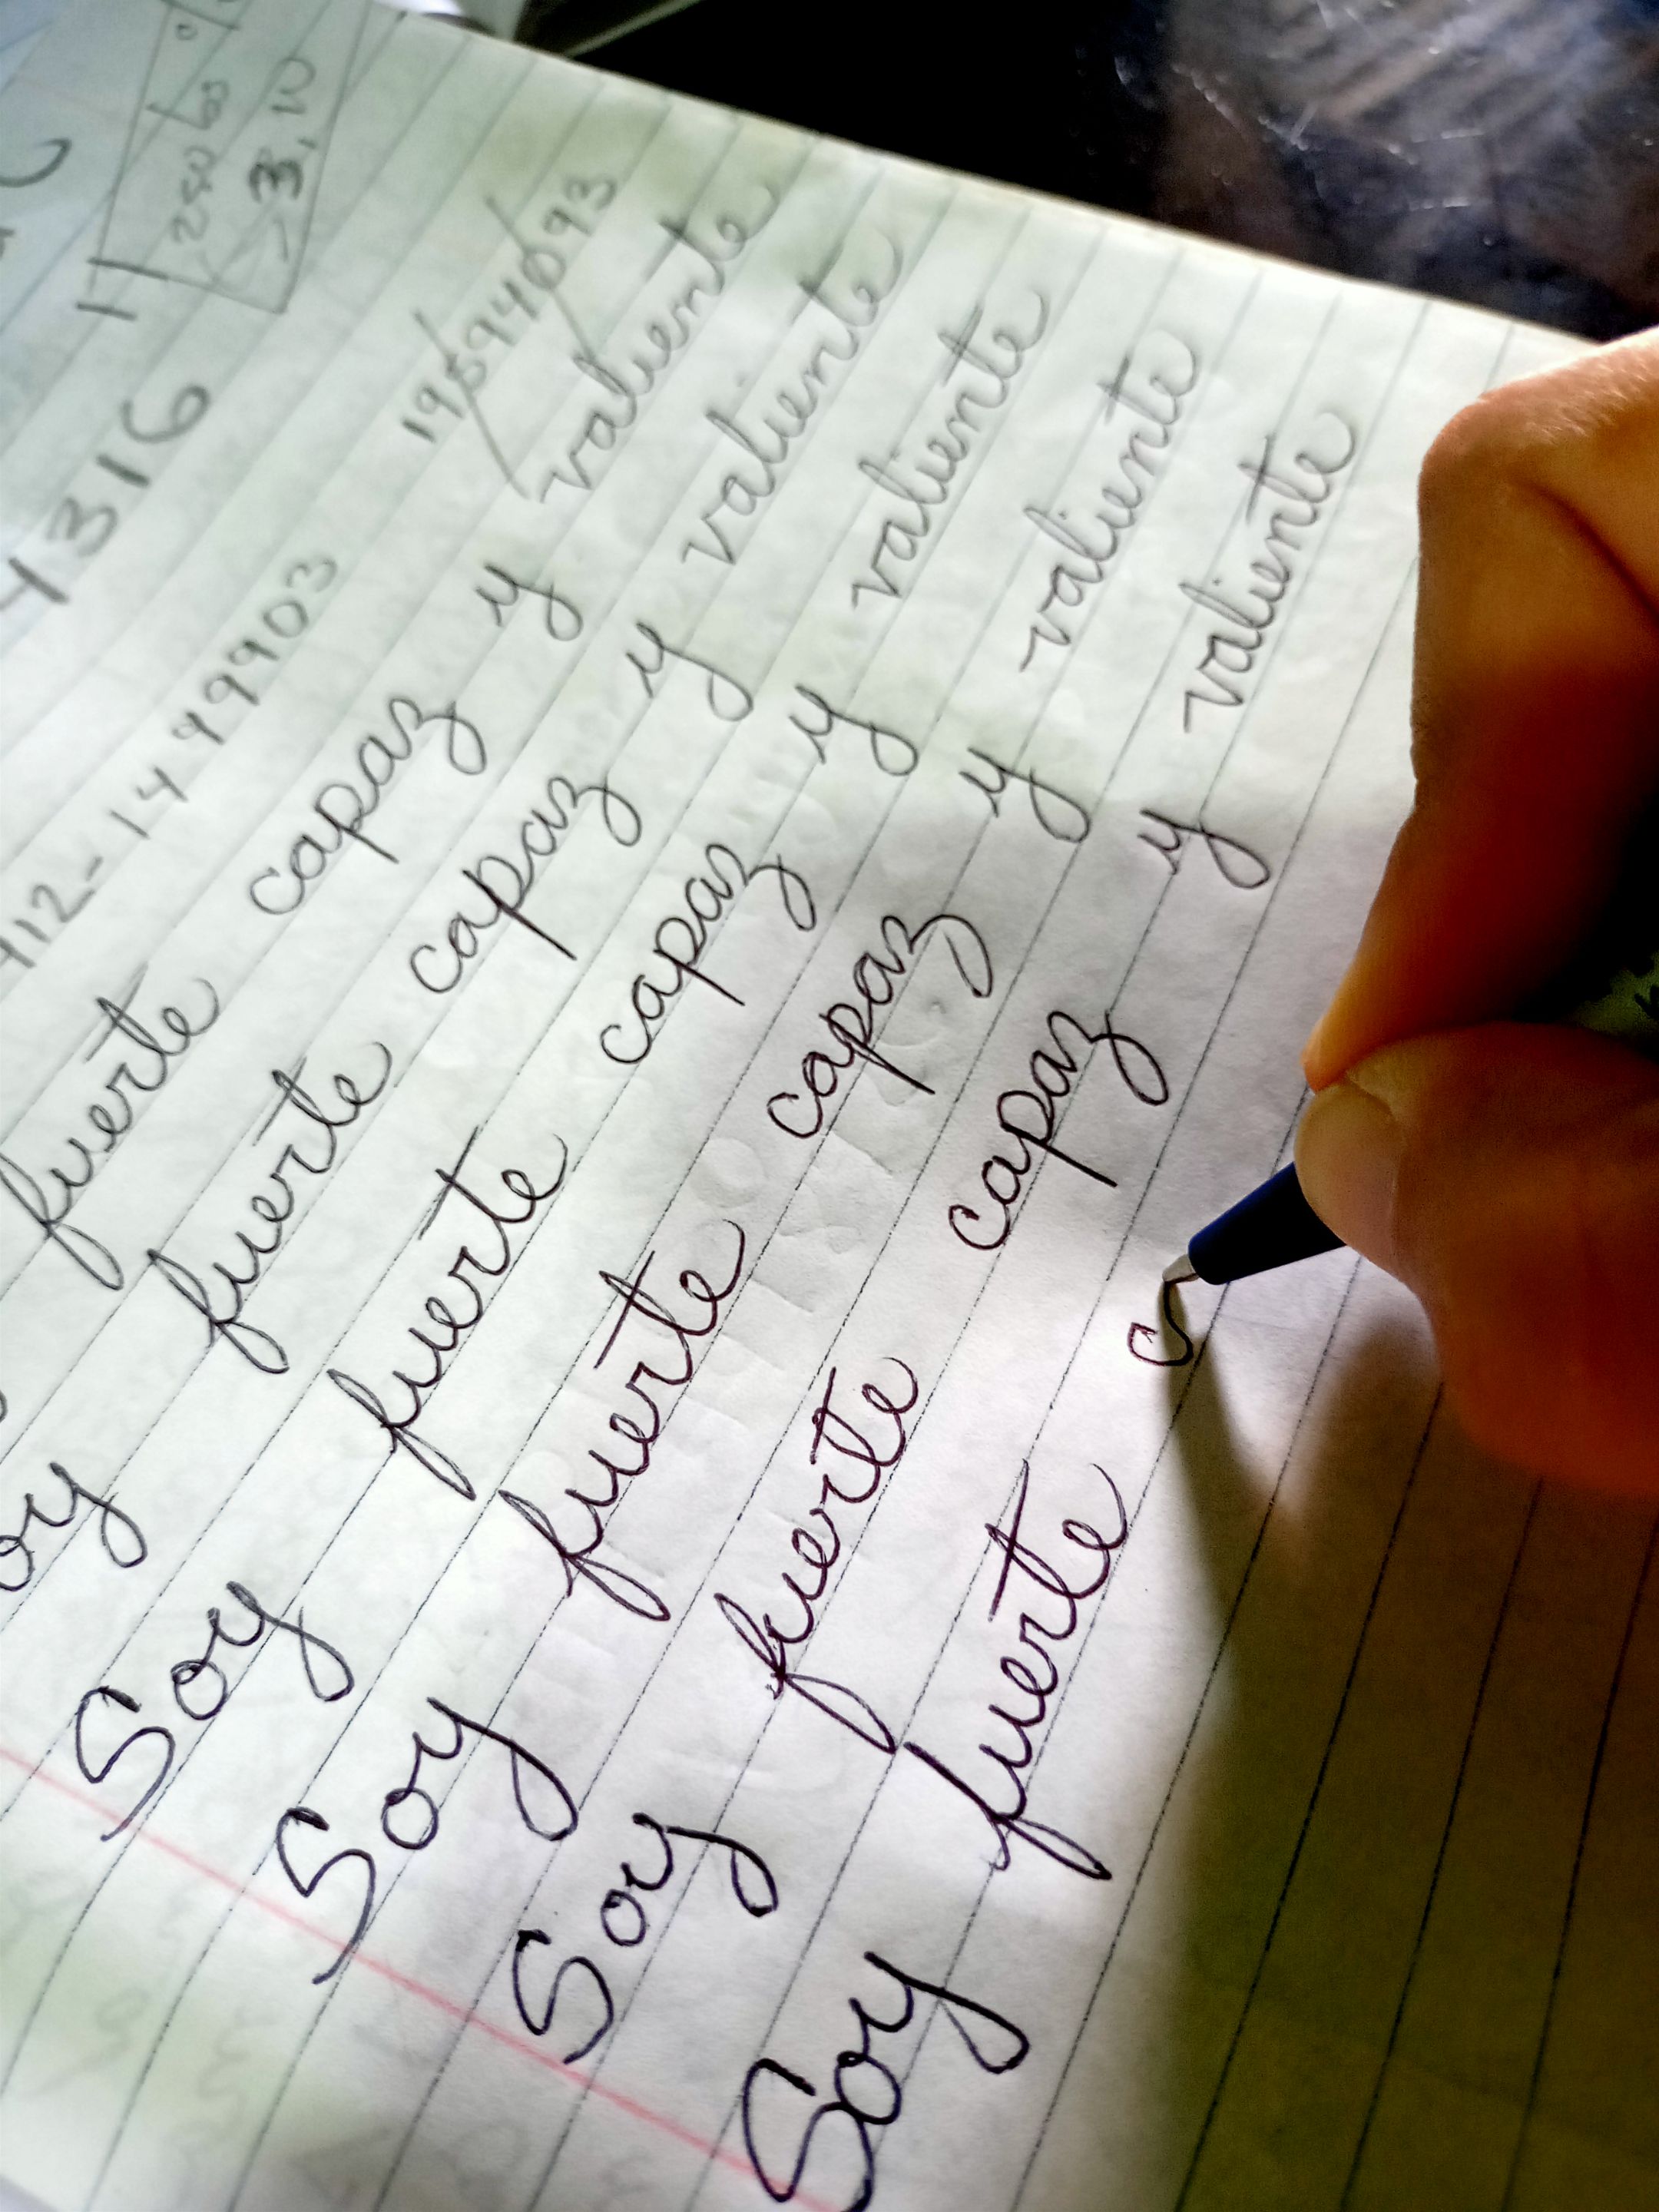 4316
fuerte capaz y valiente
oy fuerte capaz y valiente
Soy fuerte capaz y valiente
Soy fuerte capaz y valiente
Soy fuerte capaz y valiente
Soy fuerte c